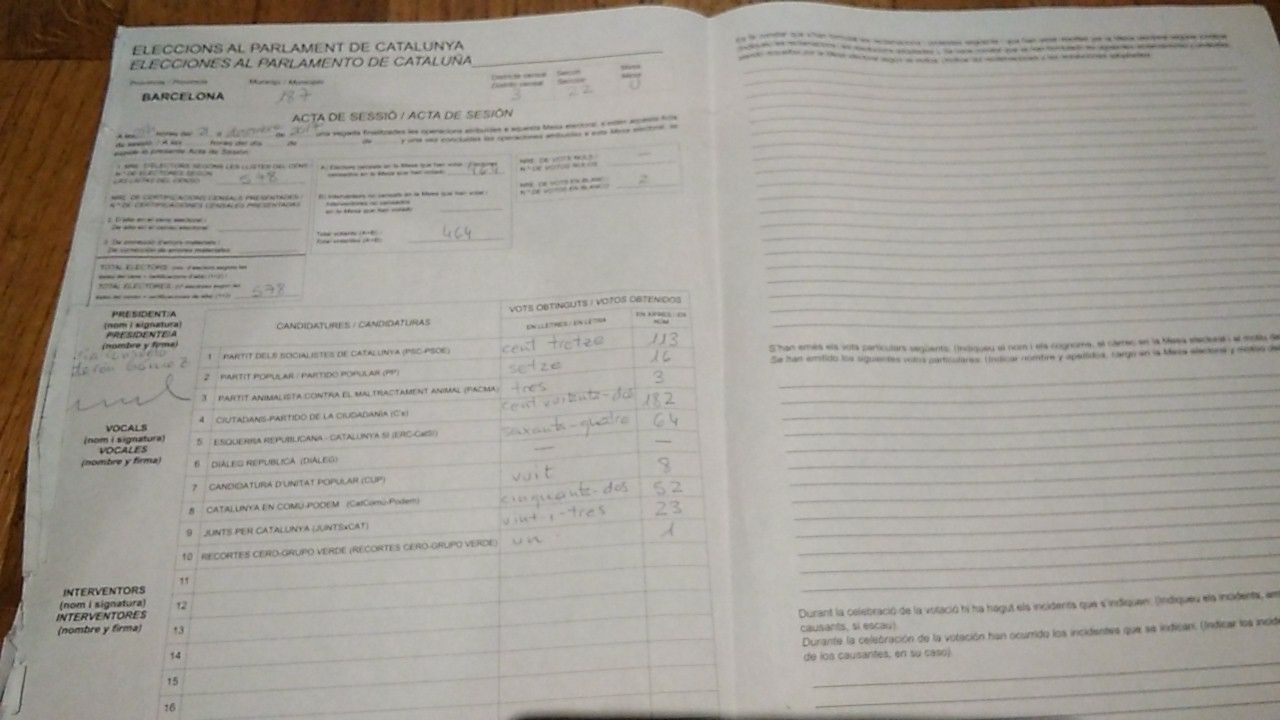 ELECCIONS AL PARLAMENT DE CATALUNYA
ELECCIONES AL PARLAMENTO DE CATALUÑA
Provincia / Provincia Municipi / Municipio Districte censal Secció Mesa
Distrito censal Sección Mesa
BARCELONA 187 3 22 U
ACTA DE SESSIÓ / ACTA DE SESIÓN
A les hores del 21 de desembre de 2017 una vegada finalitzades les operacions atribuïdes a aquesta Mesa electoral, s'estén aquesta Acta
de sessió / A las horas del día de de y una vez concluidas las operaciones atribuidas a esta Mesa electoral, se
expide la presente Acta de Sesión
1. NRE. D'ELECTORS SEGONS LES LLISTES DEL CENS
N.º DE ELECTORES SEGÚN
LAS LISTAS DEL CENSO 578
NRE. DE CERTIFICACIONS CENSALS PRESENTADES /
N.º DE CERTIFICACIONES CENSALES PRESENTADAS
2. D'alta en el cens electoral /
De alta en el censo electoral
3. De correcció d'errors materials /
De corrección de errores materiales
TOTAL ELECTORS
TOTAL ELECTORES 578
A) Electors censats en la Mesa que han votat
censados en la Mesa que han votado 464
B) Interventors no censats en la Mesa que han votat /
Interventores no censados
en la Mesa que han votado
Total votants (A+B) /
Total votantes (A+B) 464
NRE. DE VOTS NULS /
N.º DE VOTOS NULOS —
NRE. DE VOTS EN BLANC /
N.º DE VOTOS EN BLANCO 2
PRESIDENT/A
(nom i signatura)
PRESIDENTE/A
(nombre y firma)
VOCALS
(nom i signatura)
VOCALES
(nombre y firma)
INTERVENTORS
(nom i signatura)
INTERVENTORES
(nombre y firma)
CANDIDATURES / CANDIDATURAS VOTS OBTINGUTS / VOTOS OBTENIDOS
EN LLETRES / EN LETRA EN XIFRES / EN NÚM
1 PARTIT DELS SOCIALISTES DE CATALUNYA (PSC-PSOE) cent tretze 113
2 PARTIT POPULAR / PARTIDO POPULAR (PP) setze 16
3 PARTIT ANIMALISTA CONTRA EL MALTRACTAMENT ANIMAL (PACMA) tres 3
4 CIUTADANS-PARTIDO DE LA CIUDADANÍA (C's) cent vuitanta-dos 182
5 ESQUERRA REPUBLICANA - CATALUNYA SÍ (ERC-CatSí) seixanta-quatre 64
6 DIÀLEG REPUBLICÀ (DIÀLEG) — —
7 CANDIDATURA D'UNITAT POPULAR (CUP) vuit 8
8 CATALUNYA EN COMÚ-PODEM (CatComú-Podem) cinquanta-dos 52
9 JUNTS PER CATALUNYA (JUNTSxCAT) vint-i-tres 23
10 RECORTES CERO-GRUPO VERDE (RECORTES CERO-GRUPO VERDE) un 1
11
12
13
14
15
16
S'han emès els vots particulars següents: (Indiqueu el nom i els cognoms, el càrrec en la Mesa electoral i el motiu de
Se han emitido los siguientes votos particulares: (Indicar nombre y apellidos, cargo en la Mesa electoral y motivo de
Durant la celebració de la votació hi ha hagut els incidents que s'indiquen: (Indiqueu els incidents,
causants, si escau).
Durante la celebración de la votación han ocurrido los incidentes que se indican: (Indicar los
de los causantes, en su caso).